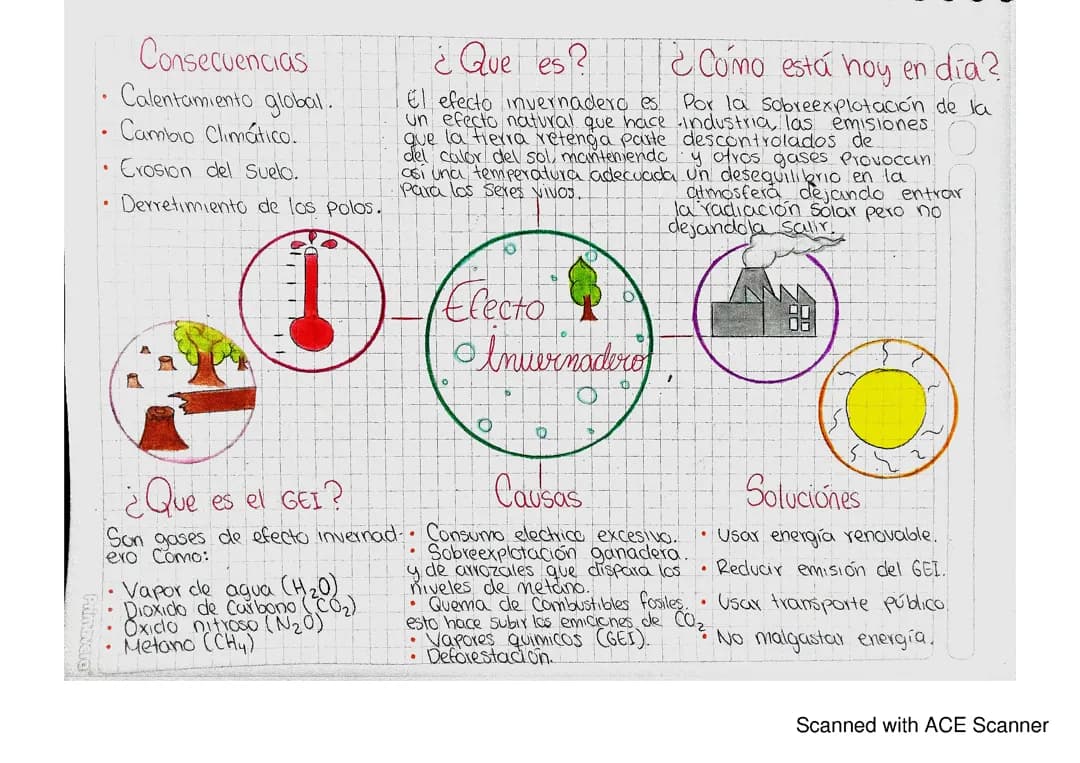 Consecuencias
• Calentamiento global.
• Cambio Climático.
• Erosion del Suelo.
• Derretimiento de los polos.
¿Que es?
El efecto invernadero es
un efecto natural que hace
que la tierra retenga parte
del calor del sol, manteniendo
así una temperatura adecuada
para los seres vivos.
¿Cómo está hoy en día?
Por la sobreexplotación de la
industria, las emisiones
descontrolados de
y otros gases provocan
un desequilibrio en la
atmosfera dejando entrar
la radiación solar pero no
dejandola salir.
Efecto
Invernadero
¿Que es el GEI?
Son gases de efecto invernad-
ero como:
• Vapor de agua (H2O)
• Dioxido de Carbono (CO2)
• Óxido nitroso (N2O)
• Metano (CH4)
Causas
• Consumo electrico excesivo.
• Sobreexplotación ganadera
y de arrozales que dispara los
niveles de metano.
• Quema de Combustibles fosiles,
esto hace subir los emiciones de CO2
• Vapores quimicos (GEI).
• Deforestación.
Soluciones
• Usar energía renovable.
• Reducir emisión del GEI.
• Usar transporte público
• No malgastar energía.
Scanned with ACE Scanner